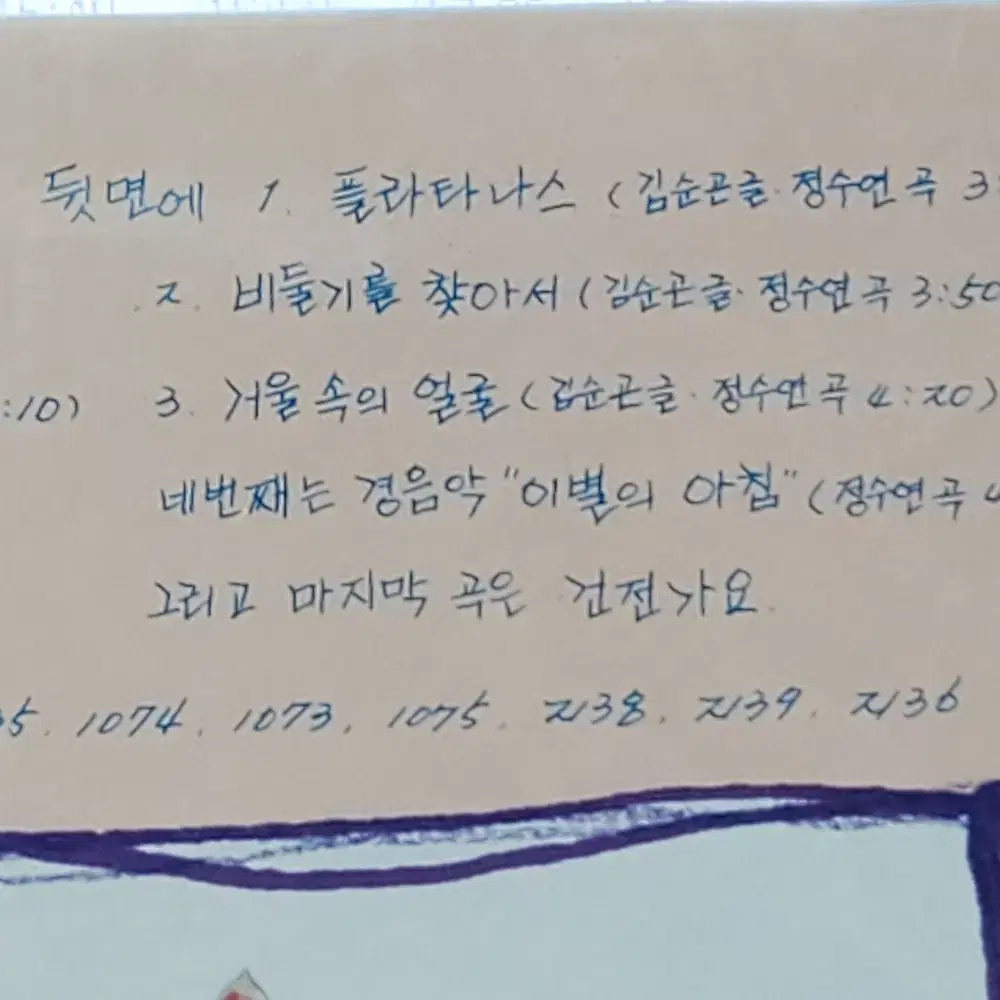 뒷면에 1. 플라타나스 (김순곤글·정수연 곡 3:
2. 비둘기를 찾아서 (김순곤글·정수연 곡 3:50
:10) 3. 거울 속의 얼굴 (김순곤글·정수연 곡 4:20)
네번째는 경음악 "이별의 아침" (정수연 곡 4
그리고 마지막 곡은 건전가요.
5. 1074. 1073. 1075. 2138. 2139. 2136